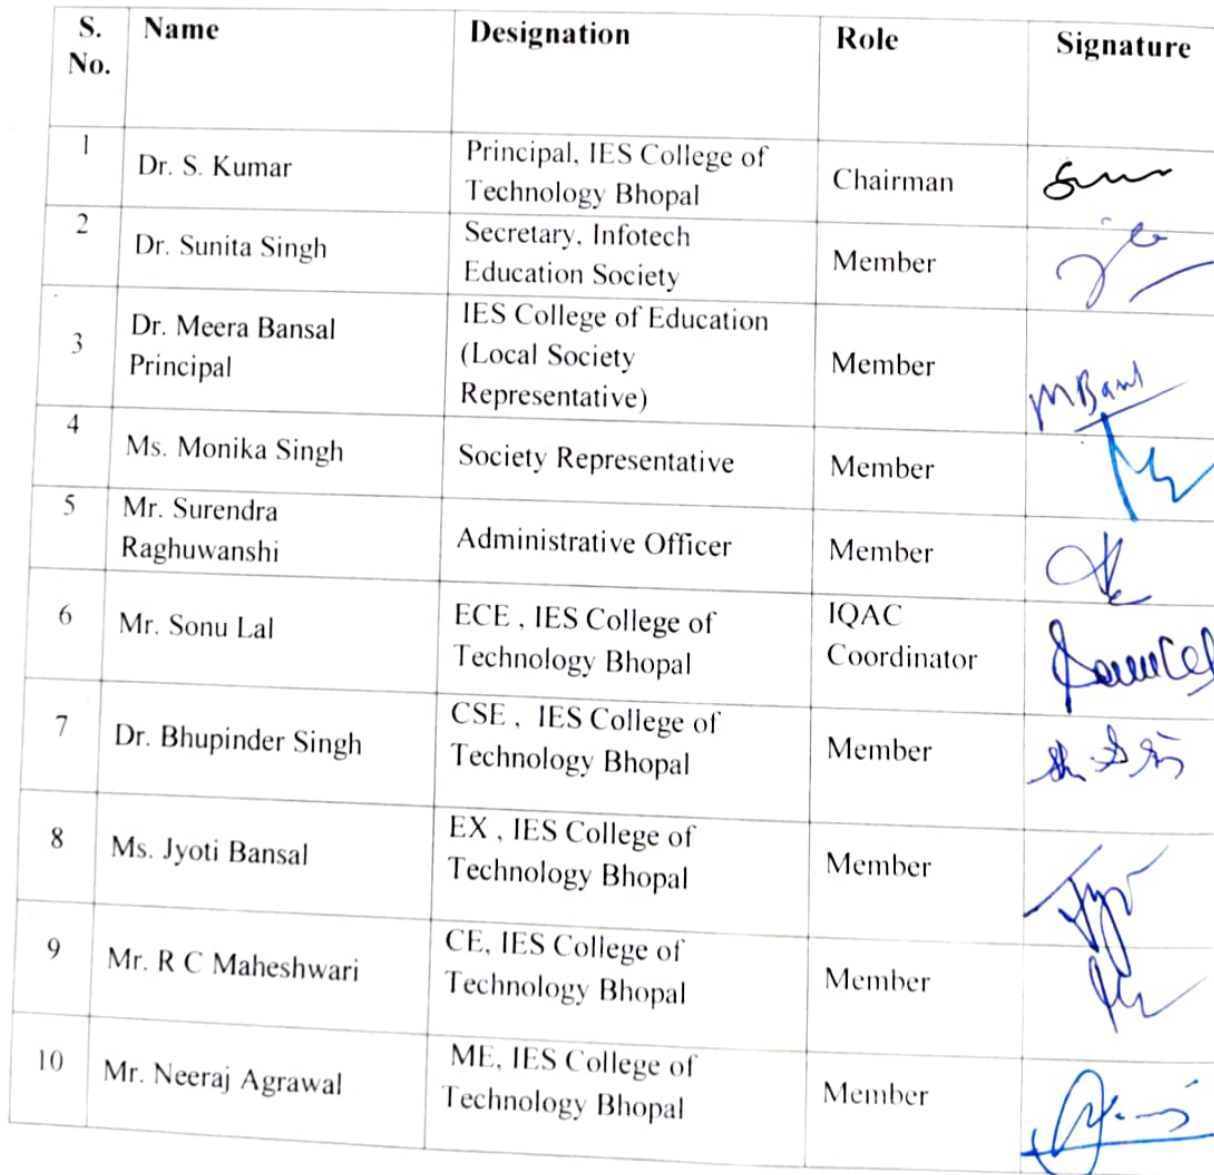 S. No. Name Designation Role Signature
1 Dr. S. Kumar Principal, IES College of Technology Bhopal Chairman
2 Dr. Sunita Singh Secretary, Infotech Education Society Member
3 Dr. Meera Bansal Principal IES College of Education (Local Society Representative) Member
4 Ms. Monika Singh Society Representative Member
5 Mr. Surendra Raghuwanshi Administrative Officer Member
6 Mr. Sonu Lal ECE , IES College of Technology Bhopal IQAC Coordinator
7 Dr. Bhupinder Singh CSE , IES College of Technology Bhopal Member
8 Ms. Jyoti Bansal EX , IES College of Technology Bhopal Member
9 Mr. R C Maheshwari CE, IES College of Technology Bhopal Member
10 Mr. Neeraj Agrawal ME, IES College of Technology Bhopal Member